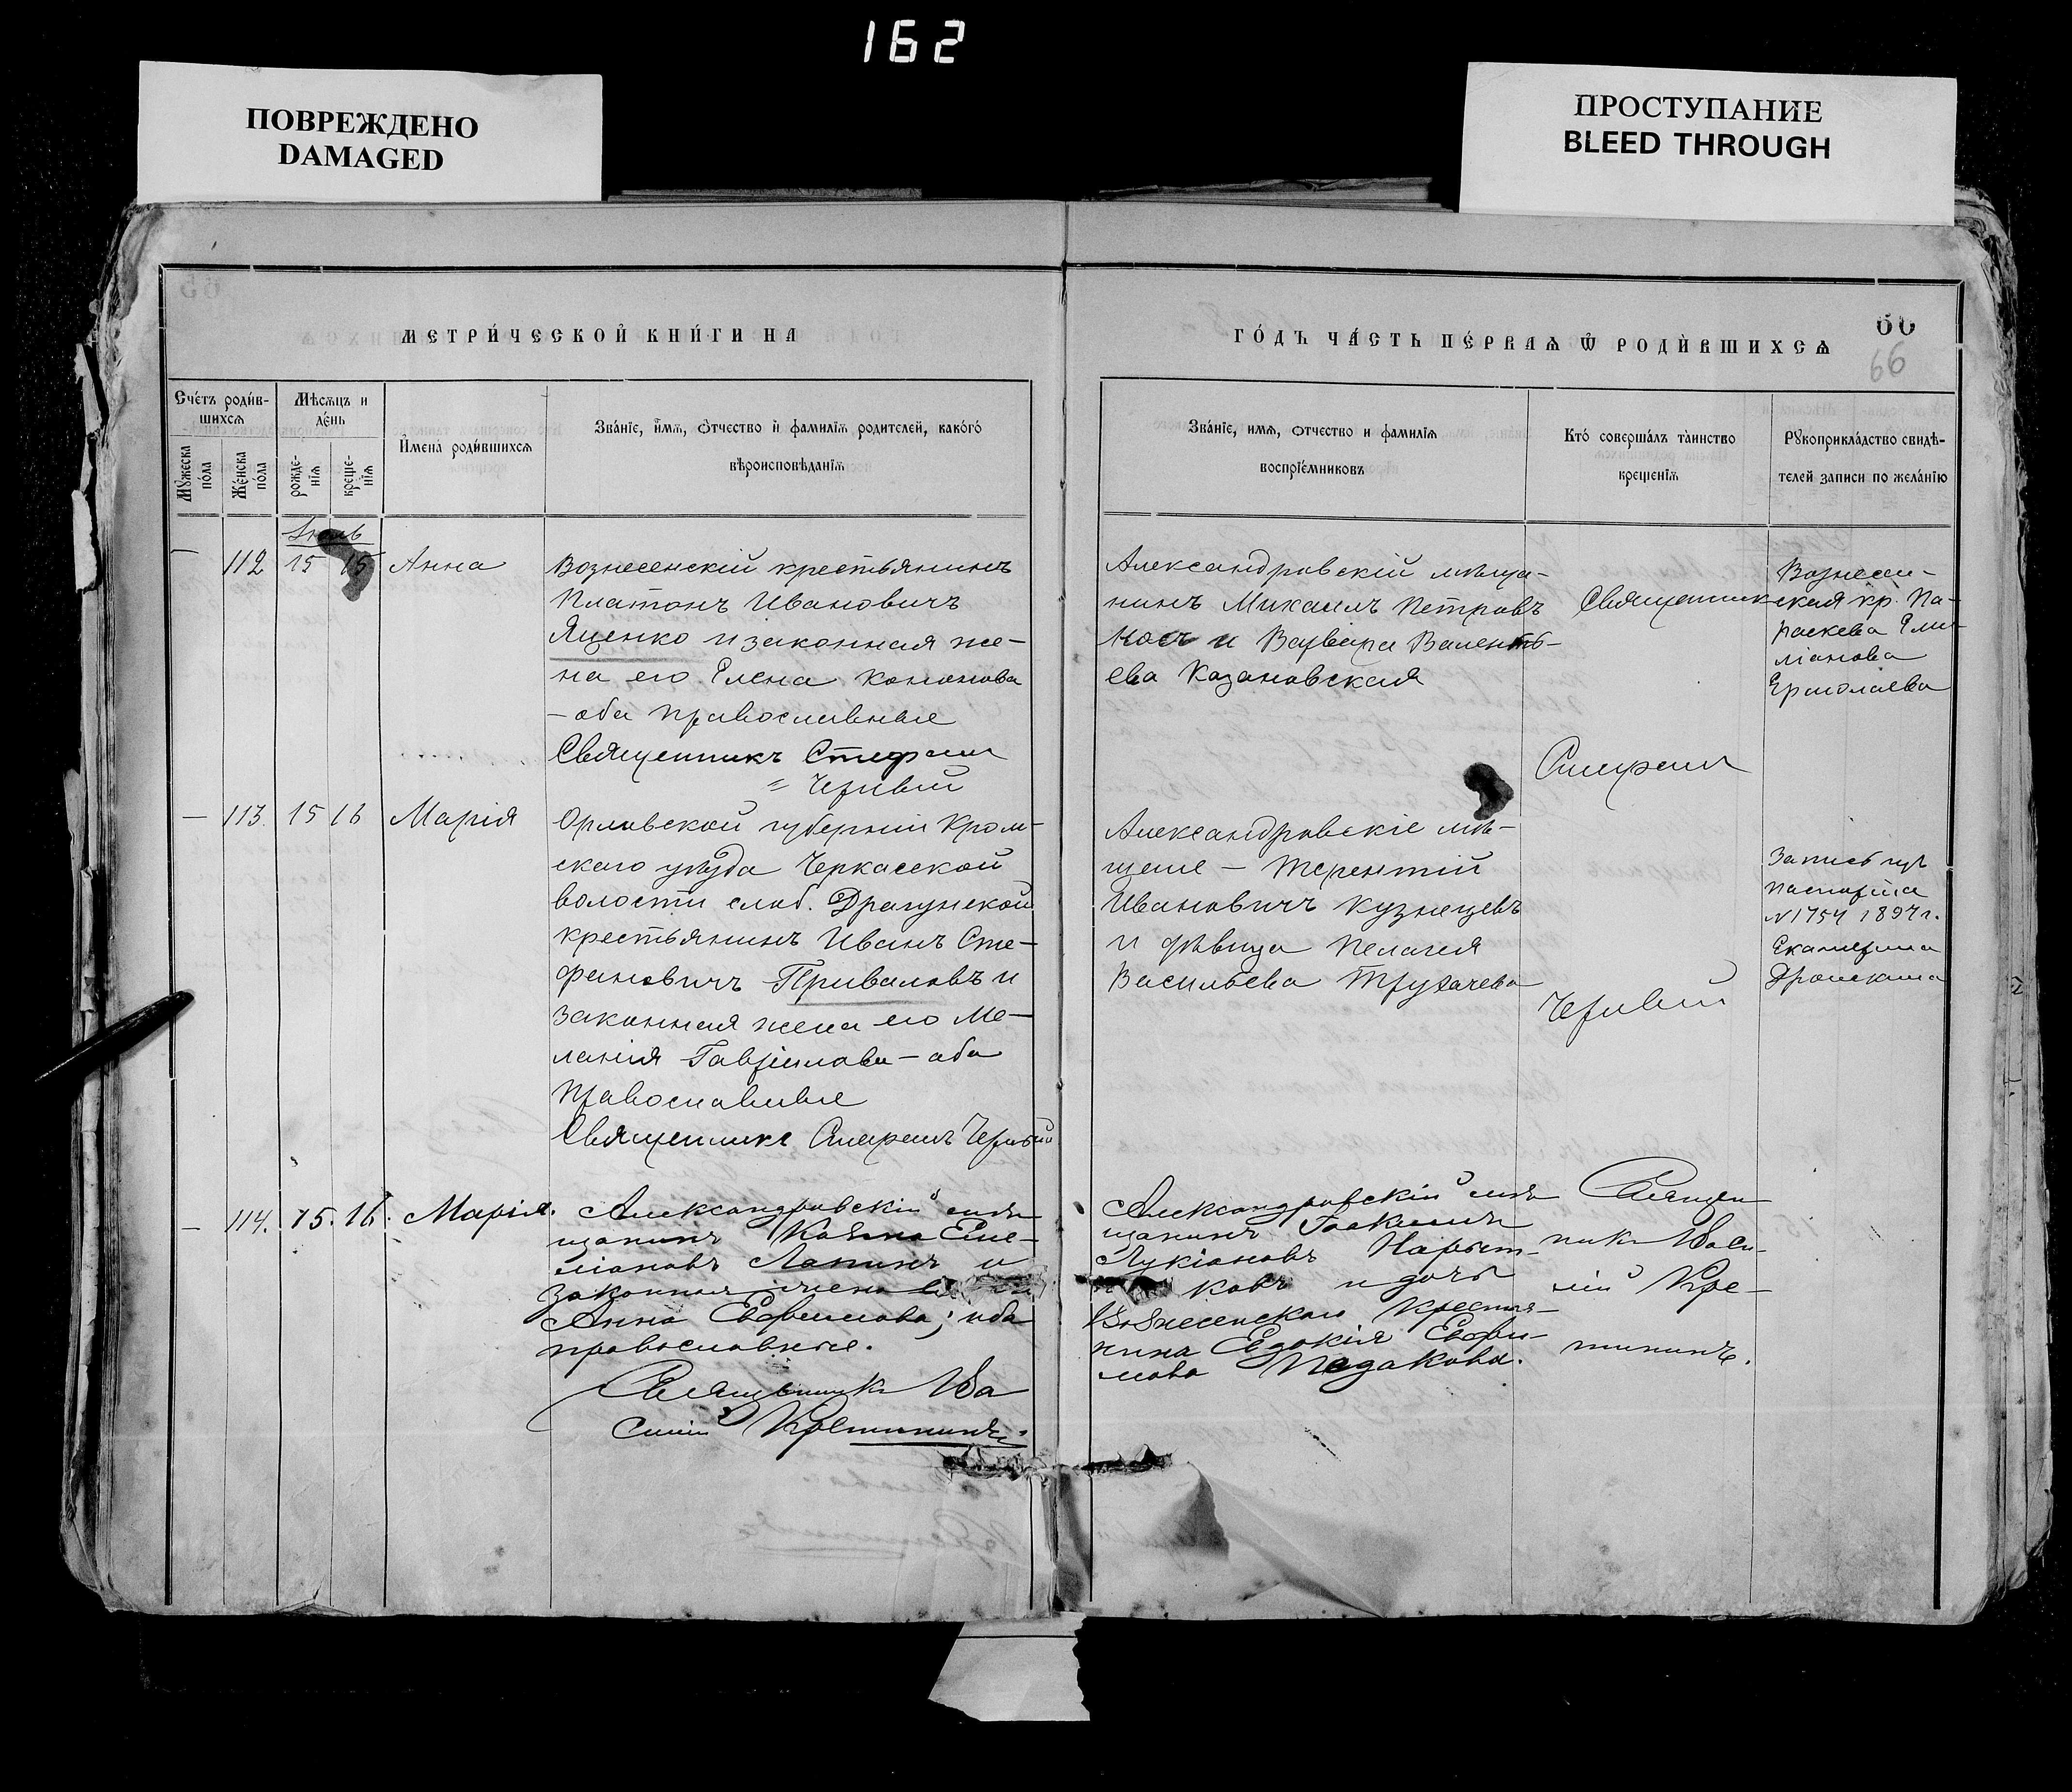 162
ПОВРЕЖДЕНО
DAMAGED
ПРОСТУПАНИЕ
BLEED THROUGH
МЕТРИ́ЧЕСКОЙ КНИ́ГИ НА
ГО́ДЪ ЧА́СТЬ ПЕ́РВАѦ Ѡ РОДИ́ВШИХСѦ
66
66
Сче́тъ роди́в-
шихсѧ
Мѣсѧцъ и
де́нь
Му́жеска
по́ла
Же́нска
по́ла
рожде-
нїѧ
креще-
нїѧ
Имена̀ роди́вшихсѧ
Зва́нїе, и́мѧ, ѻ́тчество и҆ фамилїѧ родителей, како́гѡ
вѣроисповѣданїѧ
Зва́нїе, имѧ, ѻтчество и фамилїѧ
воспрїе́мниковъ
Кто̀ соверша́лъ та̀инство
крещенїѧ
Рукоприкла́дство свидѣ-
телей записи по жела́нїю
Іюль
— 112 15 15 Анна
Вознесенскій крестьянинъ
Платонъ Ивановичъ
Яценко и законная же-
на его Елена Кононова
— оба православные
Священникъ Стефанъ
= Чернвий
Александровскій мѣща-
нинъ Михаилъ Петровъ
и Варвара Валенть-
ева Казановская
Священникъ
Стефанъ
Вознесен-
ская кр. Па-
раскева Еми-
ліанова
Ермолаева
— 113. 15 16 Марія
Орловской губерніи Кром-
скаго уѣзда Черкасской
волости слоб. Драгунской
крестьянинъ Иванъ Сте-
фановичъ Приваловъ и
законная жена его Ме-
ланія Гавріилова — оба
православные
Священникъ Стефанъ
Александровскіе мѣ-
щане — Терентій
Ивановичъ Кузнецовъ
и дѣвица Пелагея
Васильева Трухачева
Запись изъ
паспорта
N 1754 1897 г.
Екатерина
— 114. 15. 16. Марія.
Александровскій мѣ-
щанинъ Козма Еме-
ліановъ Лапинъ и
законная жена
Анна Евфимова; оба
православные.
Священникъ Ва
силій Кретининъ.
Александровскій мѣ
щанинъ Іоакимъ
Лукіановъ
ковъ и дочь
Вознесенскаго крестья-
нина Евдокія Евфи-
мова
Священ
никъ Васи-
лій Кре-
тининъ.